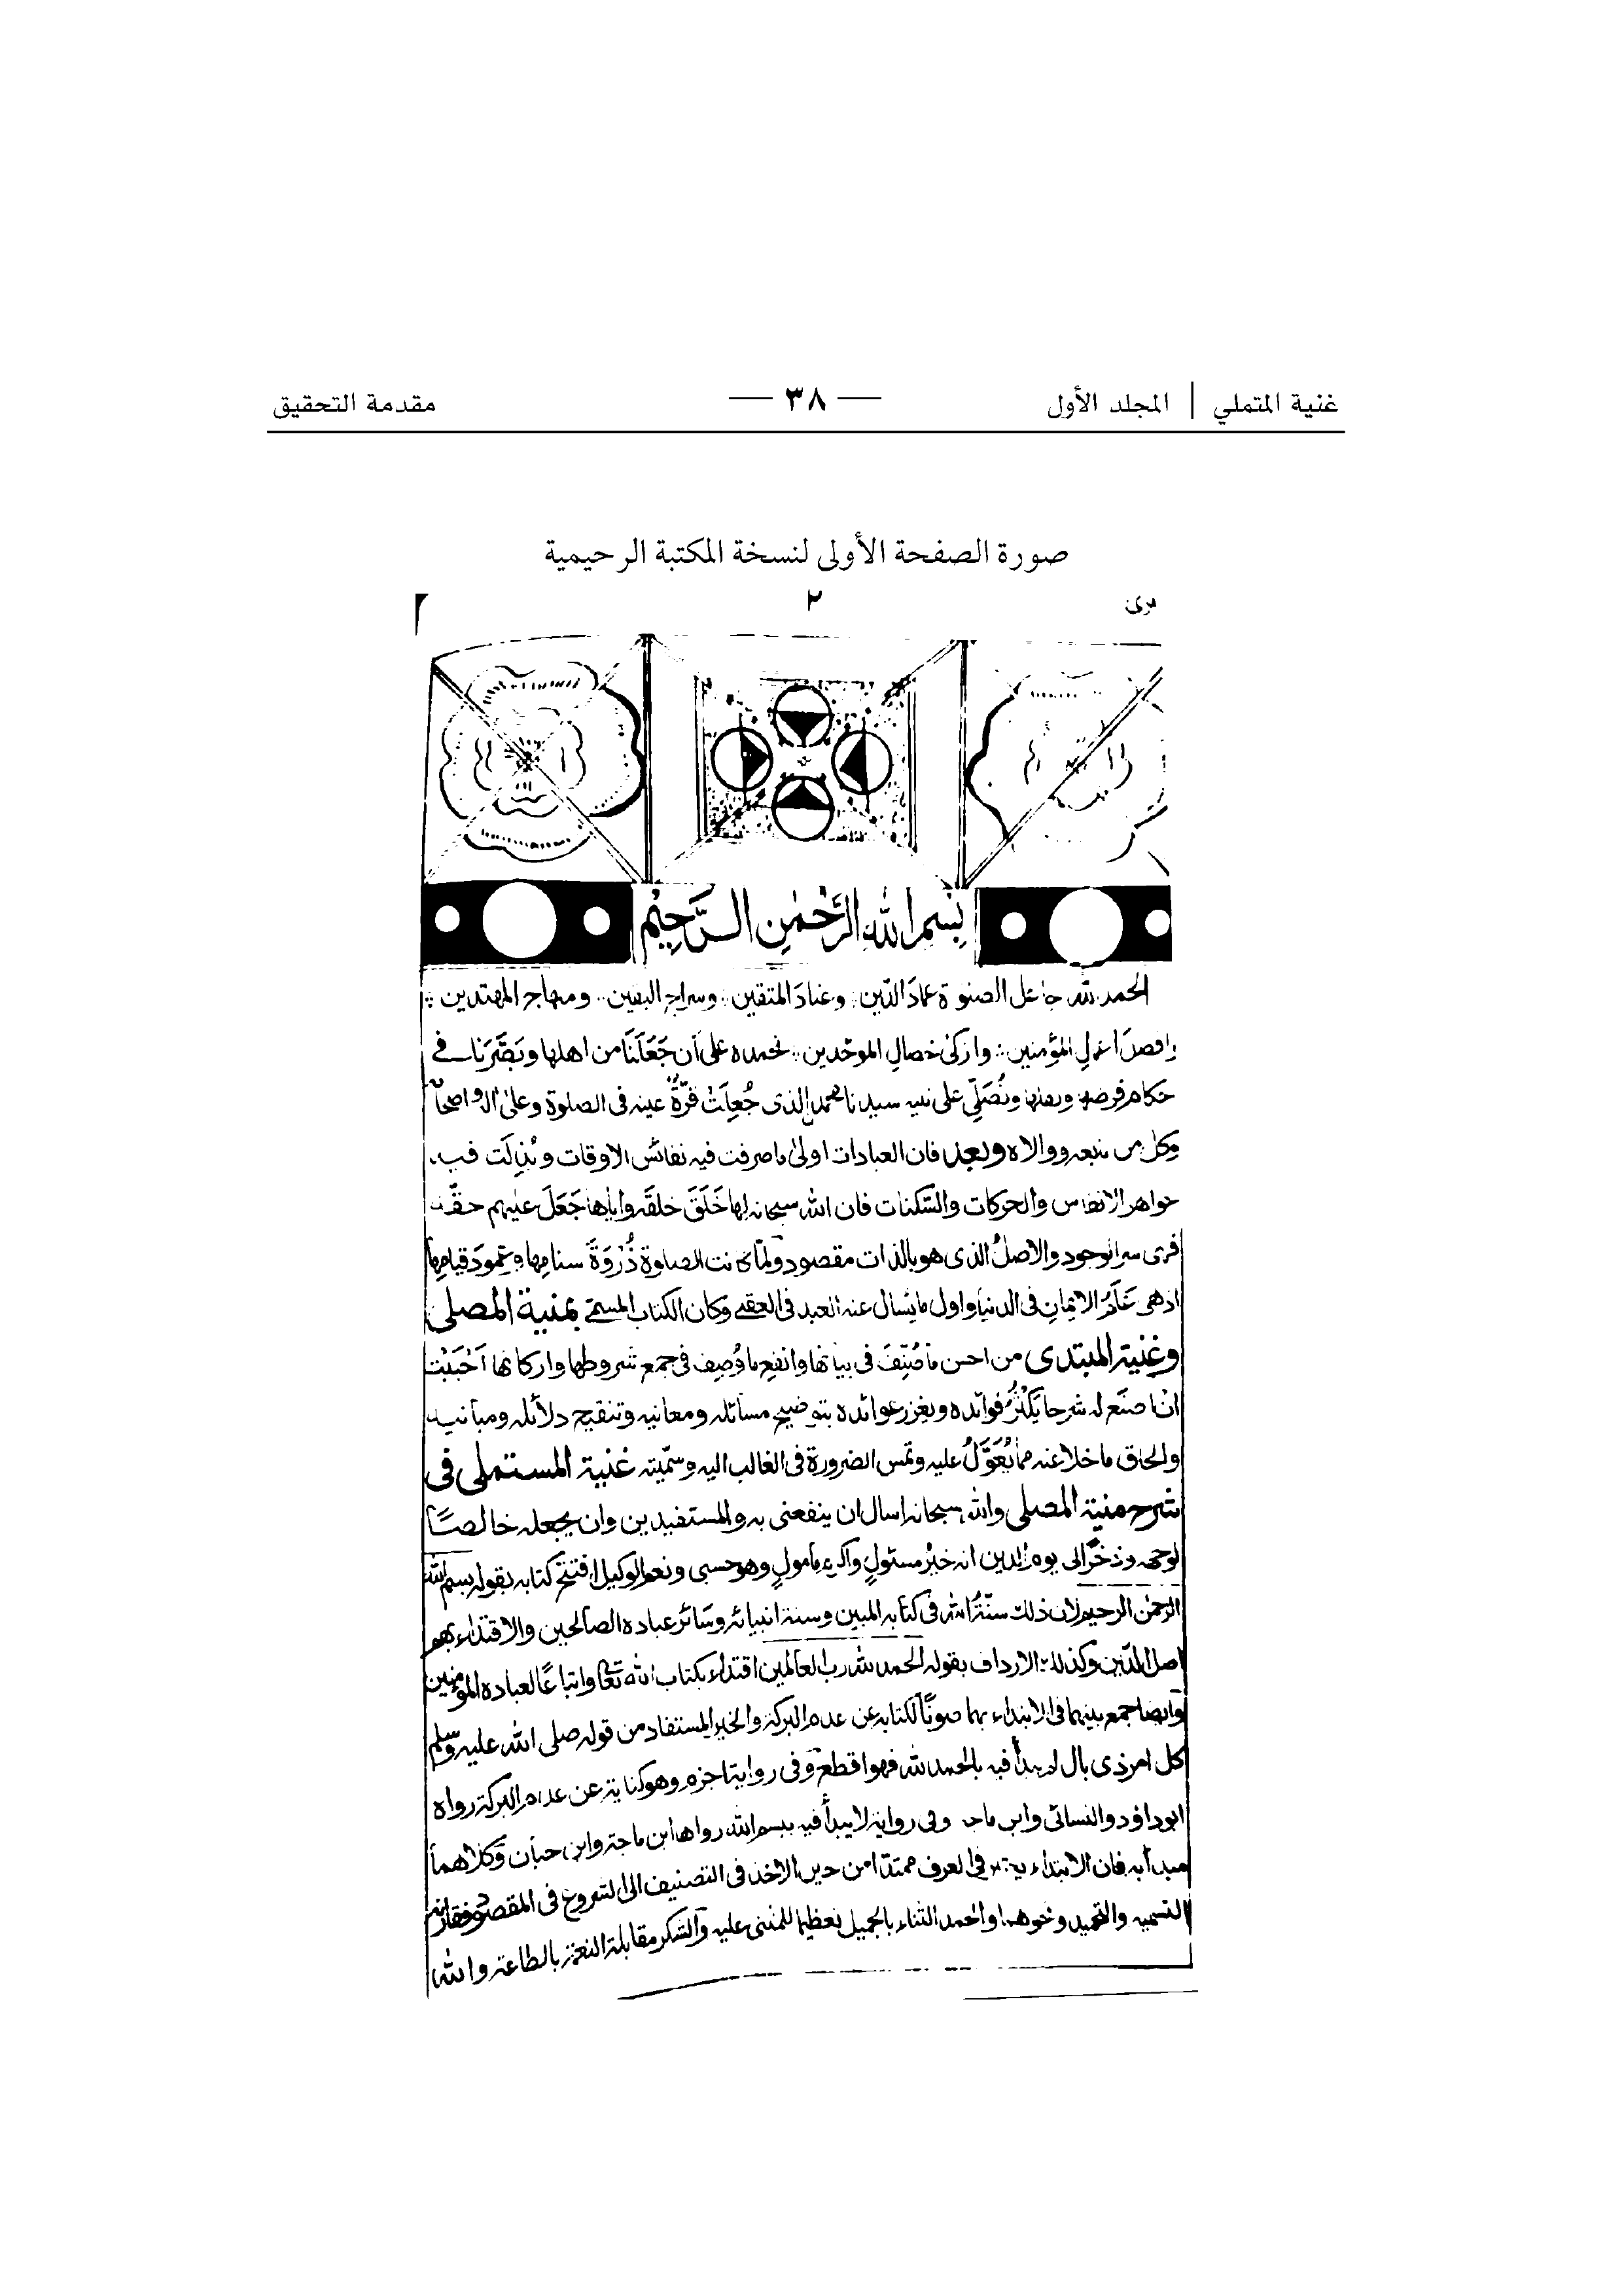 غنية المتملي | المجلد الأول — ٣٨ — مقدمة التحقيق
صورة الصفحة الأولى لنسخة المكتبة الرحيمية
٢
بِسْمِ اللهِ الرَّحْمٰنِ الرَّحِيْمِ
الحمد لله جاعل الصلوة عمادَ الدّين وعتادَ المتقين وسراج اليقين ومنهاج المهتدين
وافضل اعمالِ المؤمنين وازكىٰ خصالِ الموحّدين نحمده على أن جَعَلَنَا من اهلها وبَصَّرَنَا في
حكام فرضها ونفلها ونُصَلِّي على نبيه سيدنا محمد الذى جُعِلَتْ قرّةُ عينه فى الصلوة وعلىٰ اله واصحا
وكل من تبعه ووالاه وبعد فان العبادات اولىٰ ما صرفت فيه نفائس الاوقات وبُذِلَت فيه
جواهر الانفاس والحركات والسّكنات فان الله سبحانه لها خَلَقَ خلقَه واياها جَعَلَ عليهم حقّه
فهى سر الوجود والاصلُ الذى هو بالذات مقصود ولمّا كانت الصلوة ذُرْوَةَ سنامِها وعمودَ قيامِها
اذ هى عَلَمُ الايمانِ فى الدنيا واول ما يُسال عنه العبد فى العقبے وكان الكتاب المسمّے بمنية المصلى
وغنية المبتدى من احسن ما صُنِّفَ فى بيانها وانفع ما وُصِف فى جمع شروطها واركانها اَحْبَبْتُ
ان اصنَع له شرحا يَكْثُرُ فوائده ويغزر عوائده بتوضيح مسائله ومعانيه وتنقيح دلائله ومبانيه
ولحاق ما خلا عنه مما يُعَوَّلُ عليه وتمس الضرورة فى الغالب اليه وسمّيته غنية المستملى فى
شرح منية المصلى والله سبحانه اسال ان ينفعنى به والمستفيدين وان يجعله خالصًا
لوجهه وذخرًا الى يوم الدين انه خيرُ مسئولٍ واكرم مامولٍ وهو حسبى ونعم الوكيل افتتح كتابه بقوله بسم الله
الرحمٰن الرحيم لان ذلك سنّةُ الله فى كتابه المبين وسنة انبيائه وسائر عباده الصالحين والاقتداء بهم
اصل الدّين وكذلك الارداف بقوله الحمد لله رب العالمين اقتداء بكتاب الله تعالى واتباعًا لعباده المؤمنين
وايضا جمع بينهما فى الابتداء بهما صونًا لكتابه عن عدم البركة والخير المستفاد من قوله صلى الله عليه وسلم
كل امر ذى بال لم يبدأ فيه بالحمد لله فهو اقطع وفى رواية اجزم وهو كناية عن عدم البركة رواه
ابو داؤد والنسائى وابن ماجه وفى رواية لا يبدأ فيه ببسم الله رواها ابن ماجة وابن حبان وكلاهما
مبدأ به فان الابتداء فى العرف ممتدّا من حين الاخذ فى التصنيف الى الشروع فى المقصود فقارنه
التسمية والتحميد ونحوهما والحمد الثناء بالجميل تعظيما للمثنى عليه والشكر مقابلة النعمة بالطاعة والله